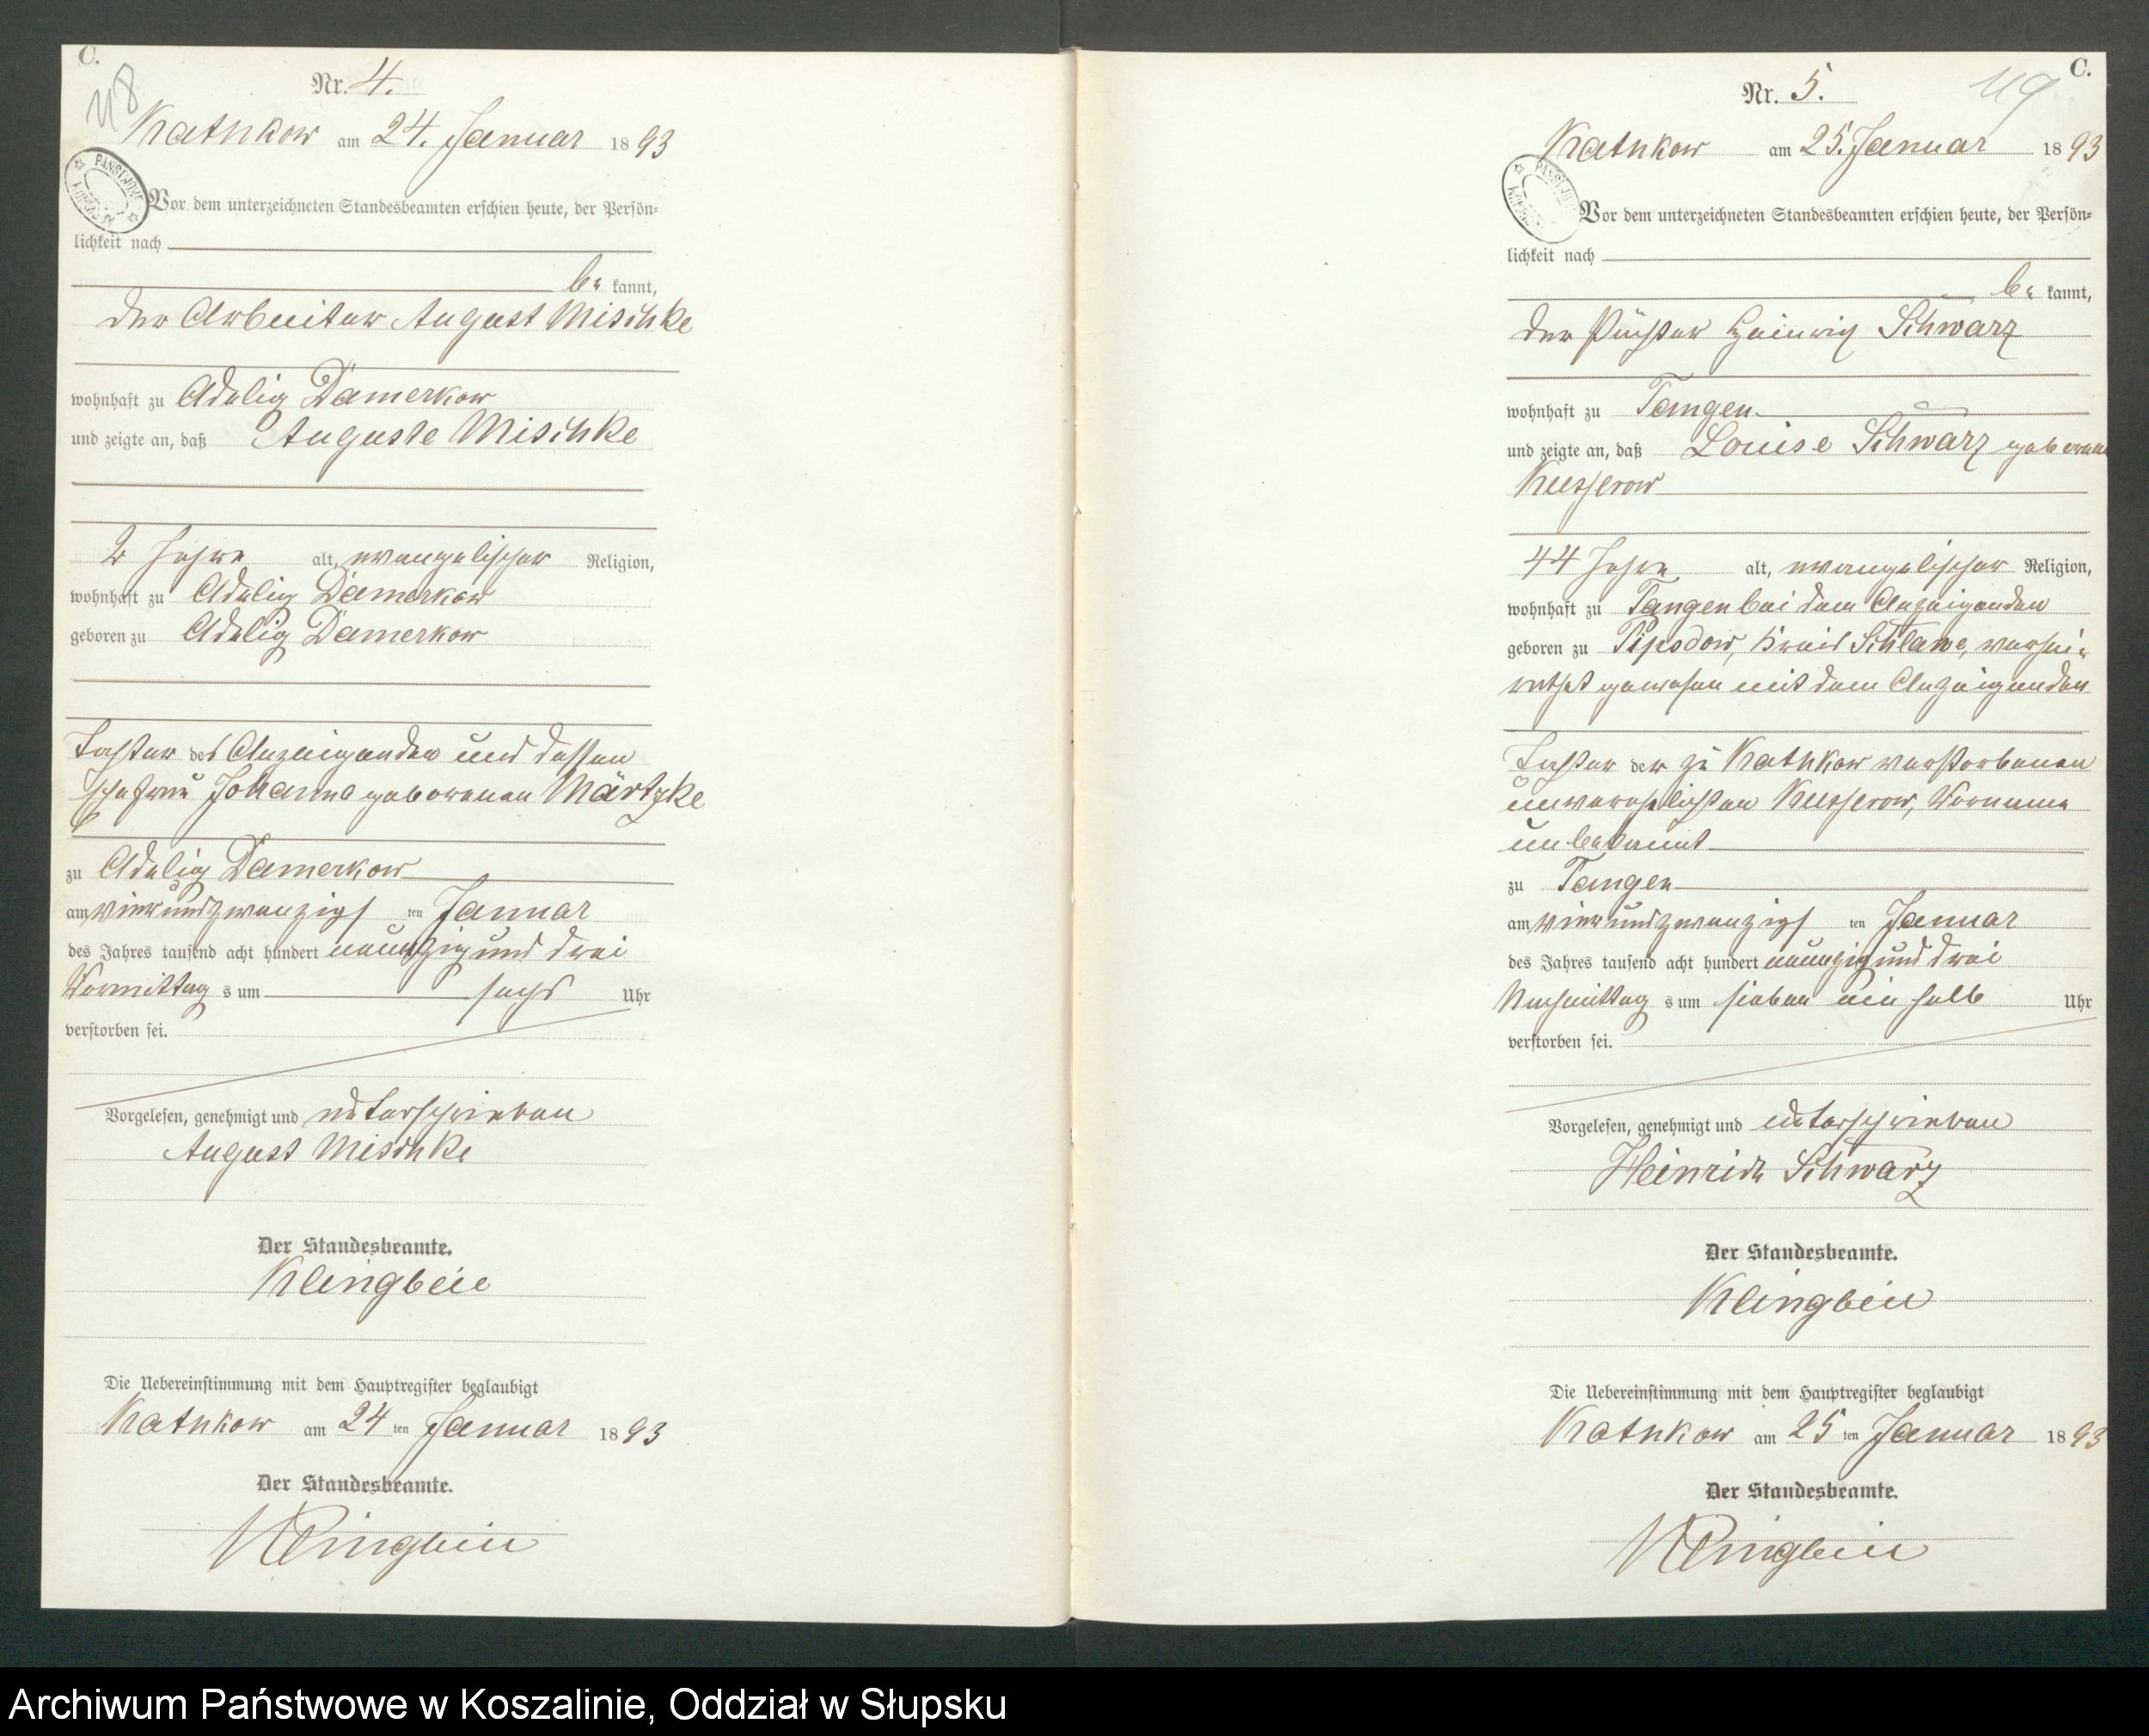 C.
118
Nr. 4.
Kathkow am 24. Januar 1893
Vor dem unterzeichneten Standesbeamten erschien heute, der Persön-
lichkeit nach
be kannt,
der Arbeiter August Mischke
wohnhaft zu Adelig Damerkow
und zeigte an, daß Auguste Mischke
2 Jahre alt, evangelischer Religion,
wohnhaft zu Adelig Damerkow
geboren zu Adelig Damerkow
Tochter des Anzeigenden und dessen
Ehefrau Johanna geborenen Märtzke
zu Adelig Damerkow
am vierundzwanzigsten Januar
des Jahres tausend acht hundert neunzig und drei
Vormittags um sechs Uhr
verstorben sei.
Vorgelesen, genehmigt und unterschrieben
August Mischke
Der Standesbeamte.
Klingbeil
Die Uebereinstimmung mit dem Hauptregister beglaubigt
Kathkow am 24 ten Januar 1893
Der Standesbeamte.
Klingbeil
C.
119
Nr. 5.
Kathkow am 25. Januar 1893
Vor dem unterzeichneten Standesbeamten erschien heute, der Persön-
lichkeit nach
be kannt,
der Heinrich Schwarz
wohnhaft zu Tangen
und zeigte an, daß Louise Schwarz geborene
Kusserow
44 Jahre alt, evangelischer Religion,
wohnhaft zu Tangen bei dem Anzeigenden
geboren zu Kreis Schlawe, verhei-
rathet gewesen mit dem Anzeigenden
Tochter der zu Kathkow verstorbenen
unverehelichten Kusserow, Vorname
unbekannt
zu Tangen
am vierundzwanzigsten Januar
des Jahres tausend acht hundert neunzig und drei
Nachmittags um sieben ein halb Uhr
verstorben sei.
Vorgelesen, genehmigt und unterschrieben
Heinrich Schwarz
Der Standesbeamte.
Klingbeil
Die Uebereinstimmung mit dem Hauptregister beglaubigt
Kathkow am 25 ten Januar 1893
Der Standesbeamte.
Klingbeil
Archiwum Państwowe w Koszalinie, Oddział w Słupsku